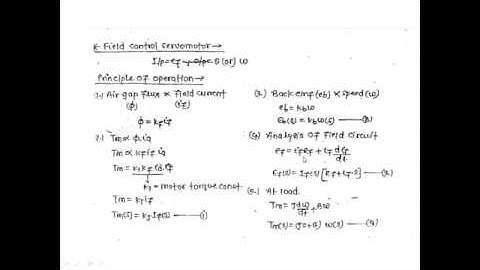 * Field control servomotor →
I/p = ef → O/p = θ (or) ω
Principle of operation →
1.) Air gap flux ∝ Field current
(ϕ) (if)
ϕ = kf if
2.) Tm ∝ ϕ ia
Tm ∝ kf if ia
Tm = k1 kf ia if
kT = motor torque const.
Tm = kT if
Tm(s) = kT If(s) —— (1)
(3.) Back emf (eb) ∝ speed (ω)
eb = kb ω
Eb(s) = kb ω(s) —— (2)
(4) Analysis of Field Circuit
ef = if Rf + Lf dif/dt
Ef(s) = If(s) [Rf + Lf s] —— (3)
(5.) At load
Tm = J dω/dt + Bω
Tm(s) = (Js + B) ω(s) —— (4)